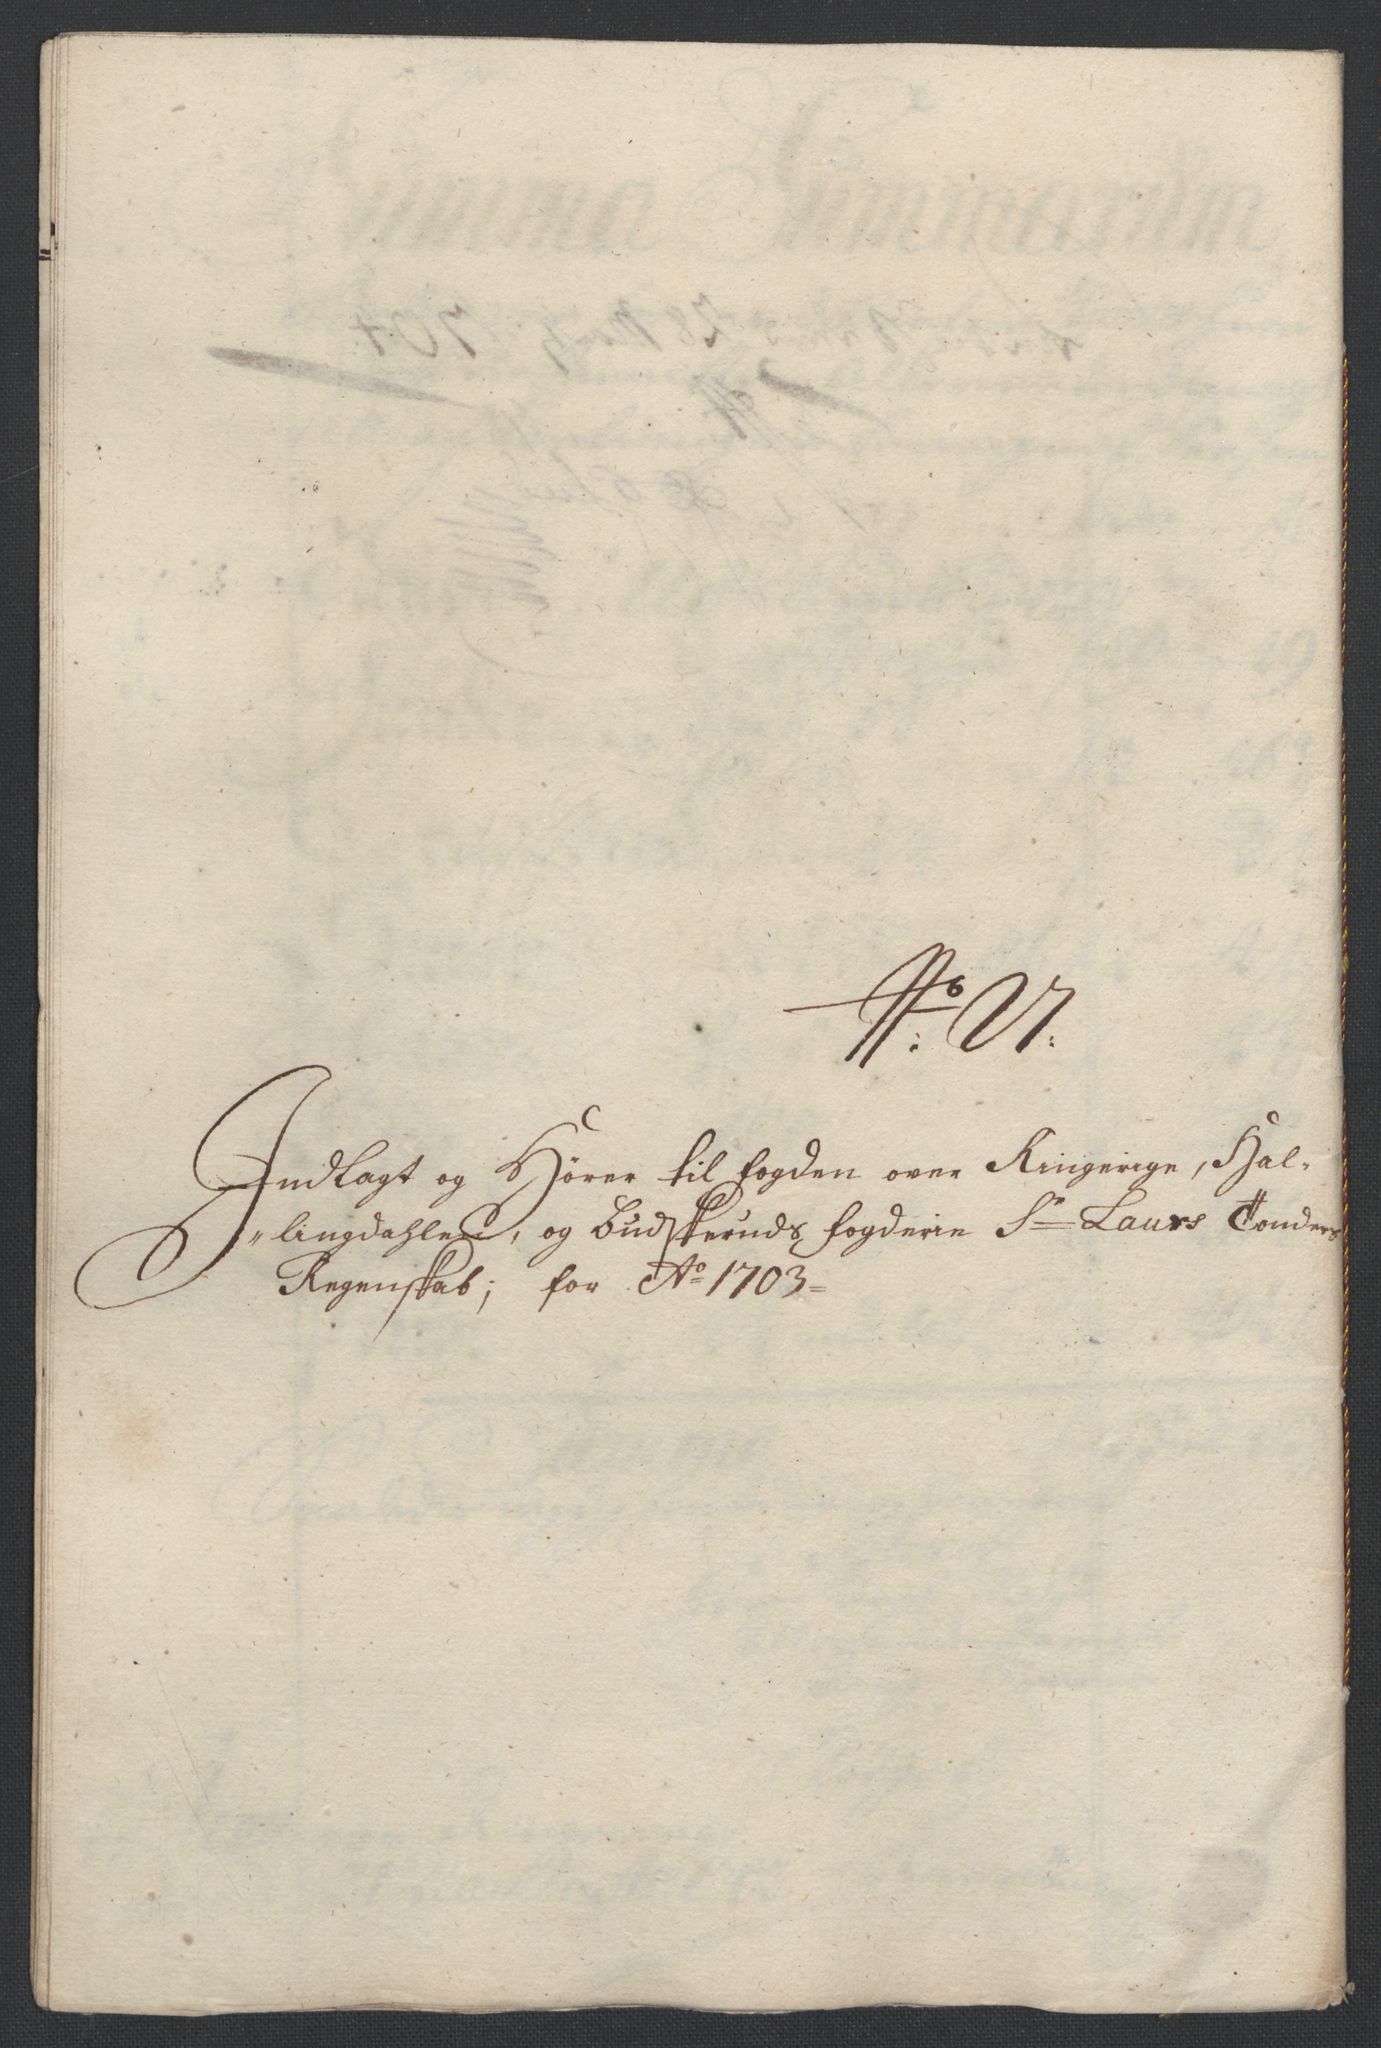 No: VI:
Indlagt og Hörer til fogden over Ringerige, Hal-
-lingdahlen, og Budskeruds fogderie Sr Laurs Tonders
Regenskab; for Ao 1703